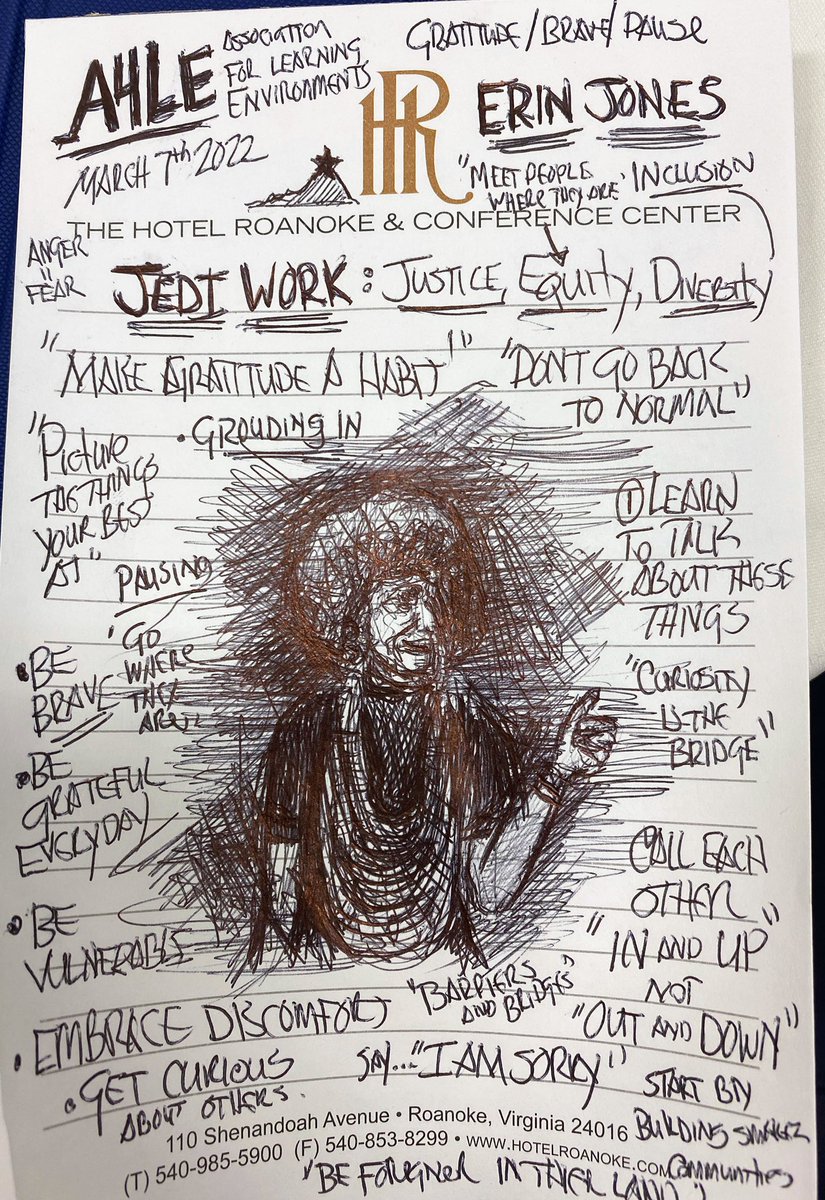 A4LE
ASSOCIATION
FOR LEARNING
ENVIRONMENTS
GRATITUDE/BRAVE/PAUSE
HR
ERIN JONES
MARCH 7th 2022
"MEET PEOPLE
WHERE THEY ARE"
INCLUSION
THE HOTEL ROANOKE & CONFERENCE CENTER
ANGER
=
FEAR
JEDI WORK: JUSTICE, EQUITY, DIVERSITY
"MAKE GRATITUDE A HABIT"
"DONT GO BACK
TO NORMAL"
• GROUDING IN
"PICTURE
THE THINGS
YOUR BEST
AT"
PAUSING
"GO
WHERE
THEY
ARE"
① LEARN
TO TALK
ABOUT THESE
THINGS
• BE
BRAVE
"CURIOSITY
IS THE
BRIDGE"
• BE
GRATEFUL
EVERYDAY
CALL EACH
OTHER
"IN AND UP"
NOT
"OUT AND DOWN"
• BE
VULNERABLE
"BARRIERS
AND BRIDGES"
• EMBRACE DISCOMFORT
• GET CURIOUS
ABOUT OTHERS.
SAY... "I AM SORRY"
START BY
BUILDING SMALLER
COMMUNITIES
110 Shenandoah Avenue • Roanoke, Virginia 24016
(T) 540-985-5900 (F) 540-853-8299 • www.HOTELROANOKE.COM
"BE FORIGNER IN THEIR LAND"